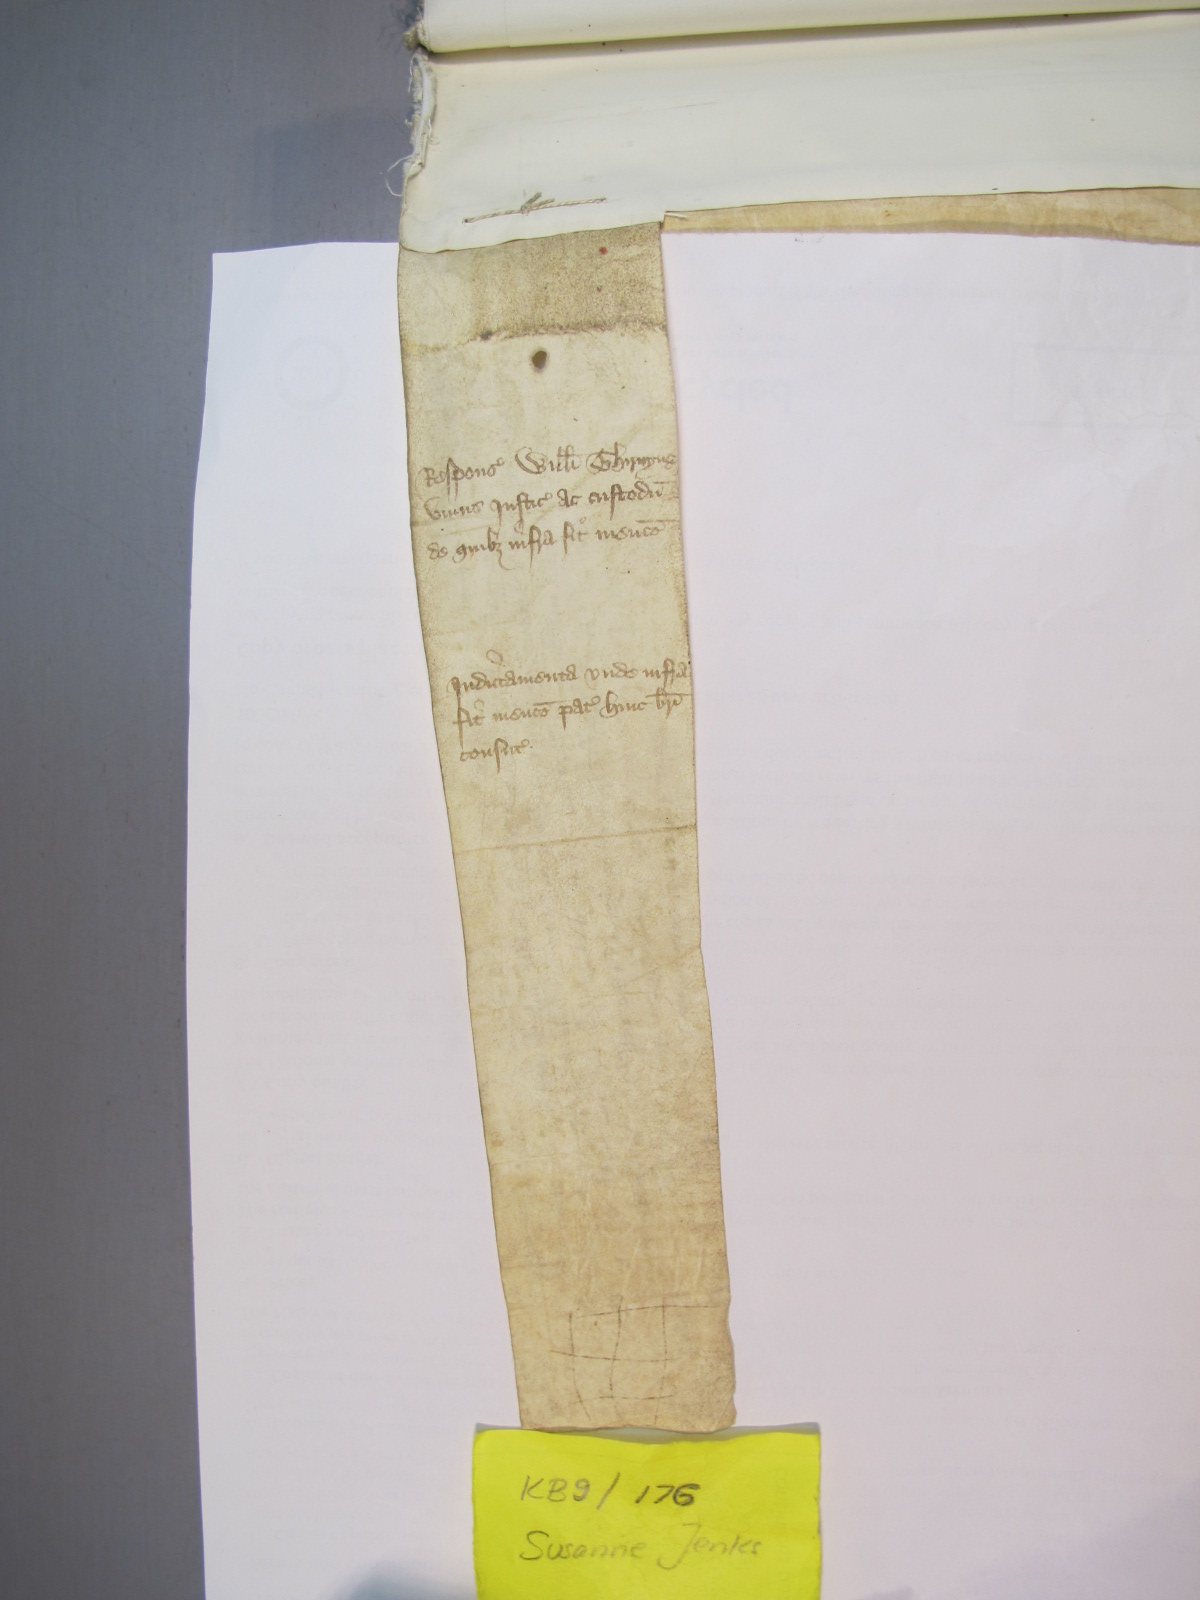 Respons Willi Thirnyng
unius Justic ac custodu
de quibz infra fit mencō
Indictamenta unde infra
fit mencō pat huic bri
consut
KB9/176
Susanne Jenks